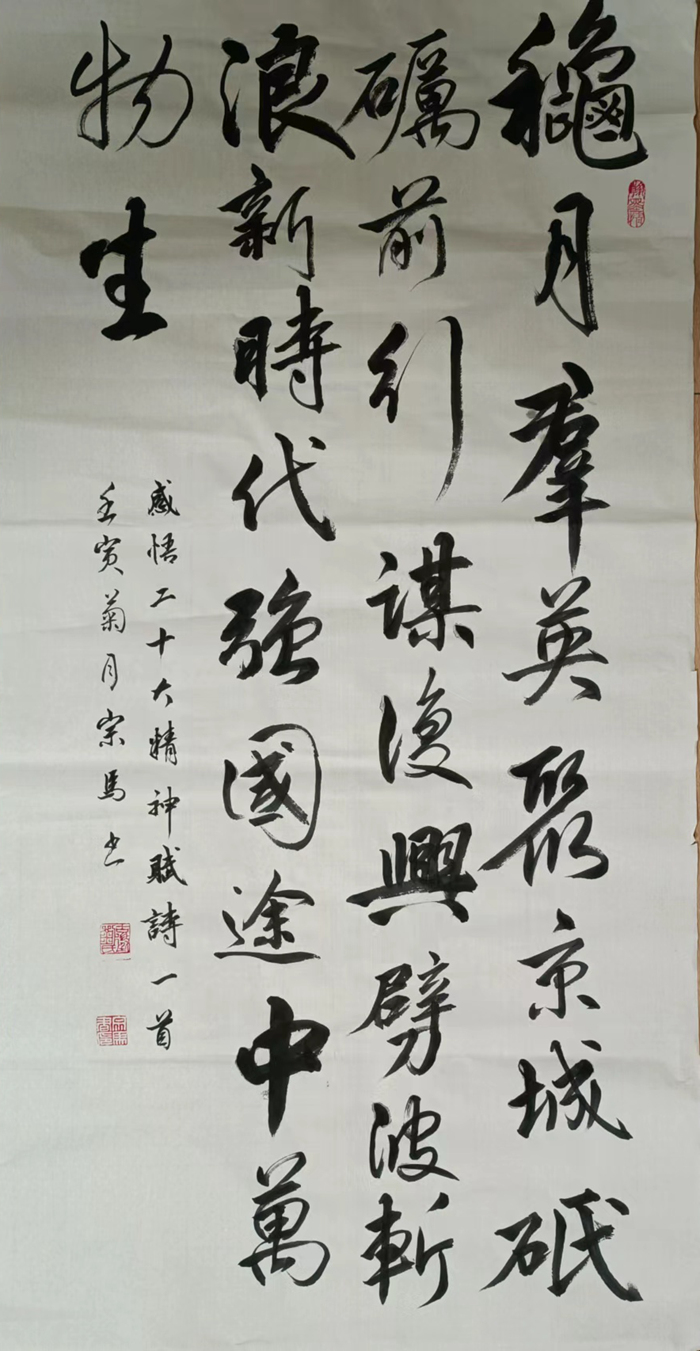 龝月羣英聚京城砥
礪前行謀復興劈波斬
浪新時代強國途中萬
物生
感悟二十大精神賦詩一首
壬寅菊月宗馬书